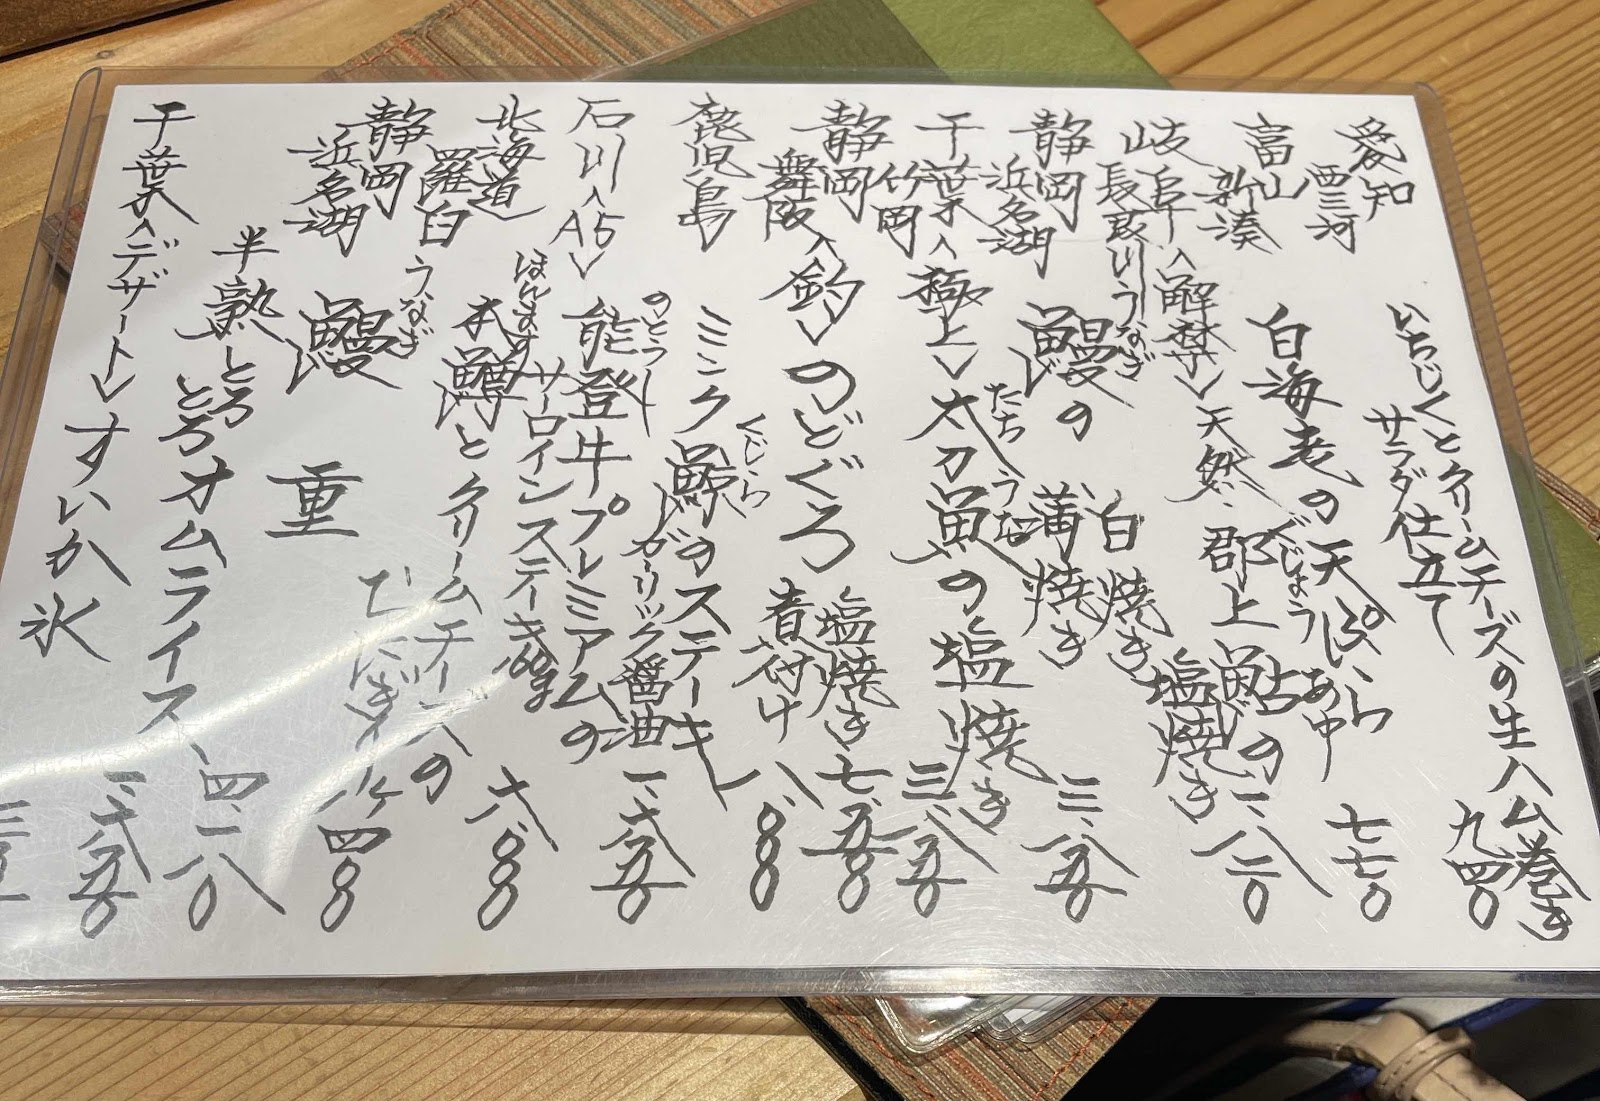 愛知
西三河
いちじくとクリームチーズの生ハム巻き
サラダ仕立て
九四〇
富山
新湊
白海老の天ぷら
七七〇
岐阜
長良川
〈解禁〉
天然
郡上鮎の
ぐじょう
あゆ
塩焼き
二、八二〇
静岡
浜名湖
うなぎ
鰻の
白焼き
蒲焼き
三、八五〇
千葉
竹岡
〈極上〉
太刀魚の塩焼き
たちうお
三、八五〇
静岡
舞阪
〈釣〉
のどぐろ
塩焼き 七、五八〇
煮付け 八、八〇〇
鹿児島
ミンク鯨のステーキ
くじら
ガーリック醤油
一、六五〇
石川〈A5〉
能登牛プレミアムの
のとうし
サーロインステーキ 160g
六、八〇〇
北海道
羅臼
ほんます
本鱒とクリームチーズの
静岡
浜名湖
うなぎ
鰻 重
半熟とろとろオムライス
四、一八〇
千葉
〈デザート〉
すいか氷
一、六五〇